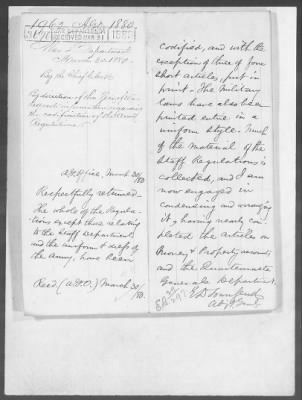 1962 A.G.O. 1880.
War Department
March 20. 1880.
By the Chief Clerk
By direction of the
the codification of the Army
Regulations.
A.G. Office, March 30/80.
Respectfully returned.
The whole of the Regula-
tions except those relating
to the Staff Departments
and the uniform & dress of
the Army, have been
Recd (A.G.O.) March 30/80.
codified, and with the
exception of three or four
short articles, put in
print. The Military
Laws have also been
printed entire in a
uniform style. Much
of the material of the
Staff Regulations is
collected, and I am
now engaged in
condensing and arranging
it, having nearly com-
pleted the articles on
Money & Property accounts
and the Quartermaster
General's Department.
E D Townsend
Adjt. Genl.